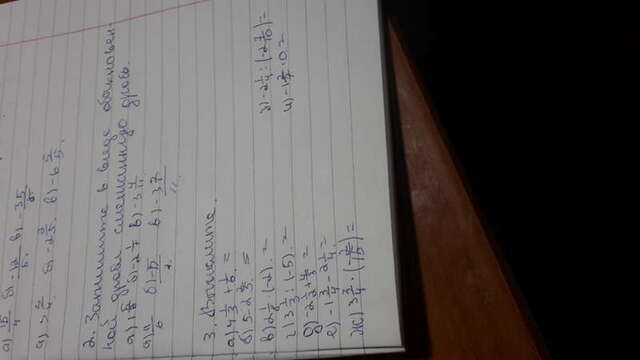 а) 15/4 б) -12/5. в) -35/8
а) 3 3/4 б) -2 3/5. в) -6 5/5.
2. Запишите в виде обыкновен-
ной дроби смешанную дробь.
б) -2 1/7 в) -3 4/11
в) -37/11
3. Вычислите.
а) 4 1/3 + 1/6. =
б) 5 - 2 2/3. =
в) 2 1/8 · (-2). =
г) 3 1/3 : (-5). =
д) -2 1/2 + 4/3 =
е) -1 3/4 - 2 1/4. =
ж) 3 3/4 · (-2/15) =
з) -2 1/4 : (-2 7/10) =
и) · 0 =